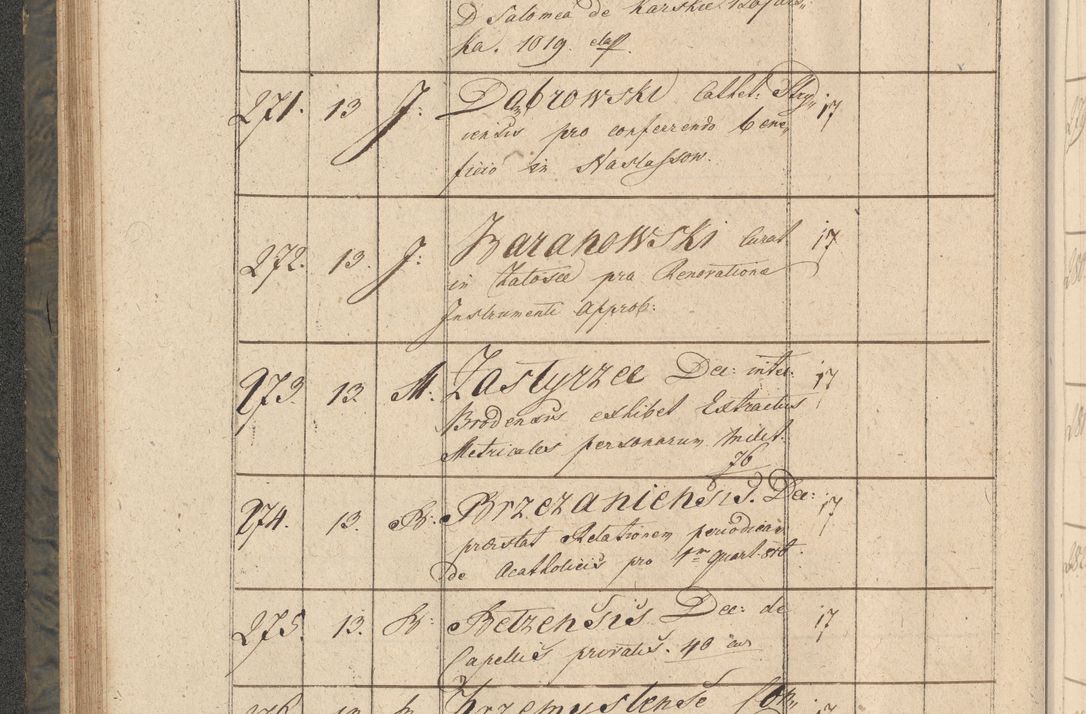 D Salomea de Karskie
ka. 1819.
271. 13 J: Dąbrowski Cathel: Stry 17
iensis pro conferendo bene
ficio in Nastassow.
272. 13. J: Baranowski Curat 17
in Załosce pro Renovatione
Instrumenti approb:
273. 13. M: Zastyrzec Dec: inter. 17
Brodensis exhibet Extractus
Metricales personarum milit.
76
274. 13. B: Brzezaniensis. Dec: 17
præstat Relationem periodicam
de Acatholicis pro 1m quart.
275. 13. B: Betzensis Dec: de 17
Capellis privatis. 40
276. 13 Przemyslense 17